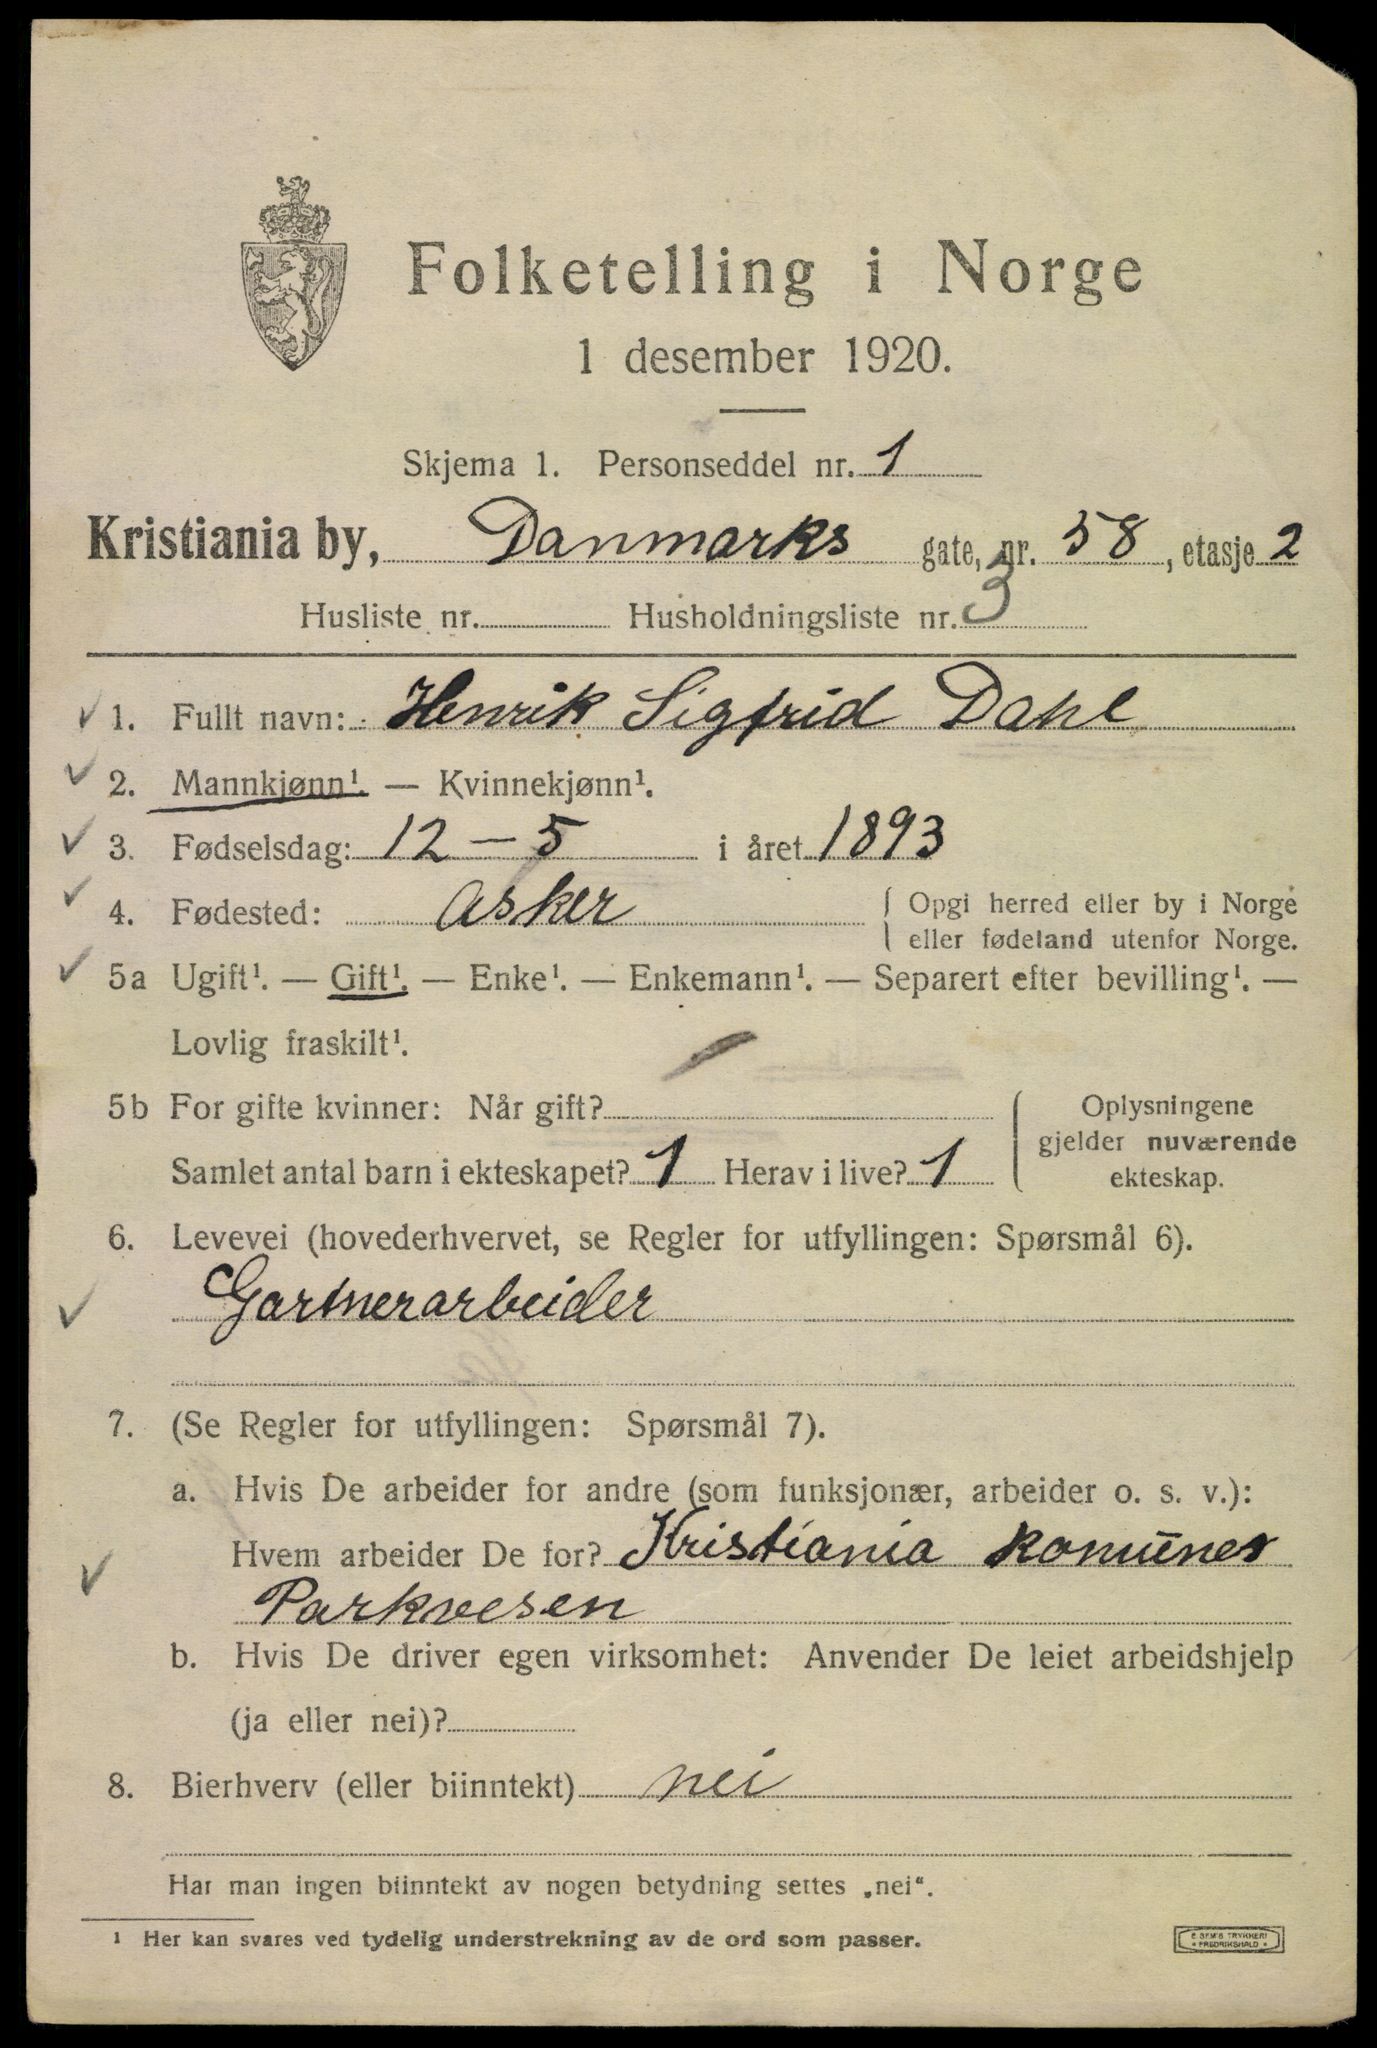 Folketelling i Norge
1 desember 1920.
Skjema 1. Personseddel nr. 1
Kristiania by, Danmarks gate, nr. 58, etasje 2
Husliste nr. Husholdningsliste nr. 3
1. Fullt navn: Henrik Sigfrid Dahl
2. Mannkjønn¹. — Kvinnekjønn¹.
3. Fødselsdag: 12 – 5 i året 1893
4. Fødested: Asker { Opgi herred eller by i Norge
eller fødeland utenfor Norge.
5a Ugift¹. — Gift¹. — Enke¹. — Enkemann¹. — Separert efter bevilling¹. —
Lovlig fraskilt¹.
5b For gifte kvinner: Når gift? { Oplysningene
gjelder nuværende
Samlet antal barn i ekteskapet? 1 Herav i live? 1 ekteskap.
6. Levevei (hovederhvervet, se Regler for utfyllingen: Spørsmål 6).
Gartnerarbeider
7. (Se Regler for utfyllingen: Spørsmål 7).
a. Hvis De arbeider for andre (som funksjonær, arbeider o. s. v.):
Hvem arbeider De for? Kristiania komunes
Parkvesen
b. Hvis De driver egen virksomhet: Anvender De leiet arbeidshjelp
(ja eller nei)?
8. Bierhverv (eller biinntekt) nei
Har man ingen biinntekt av nogen betydning settes „nei“.
¹ Her kan svares ved tydelig understrekning av de ord som passer.
E. SEM'S TRYKKERI
• FREDRIKSHALD •